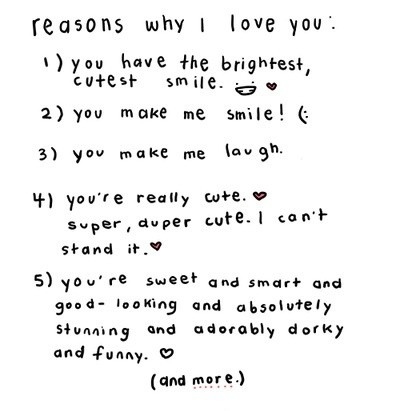 reasons why I love you:
1) you have the brightest,
cutest smile.
2) you make me smile! (:
3) you make me laugh.
4) you're really cute.
super, duper cute. I can't
stand it.
5) you're sweet and smart and
good-looking and absolutely
stunning and adorably dorky
and funny.
(and more.)